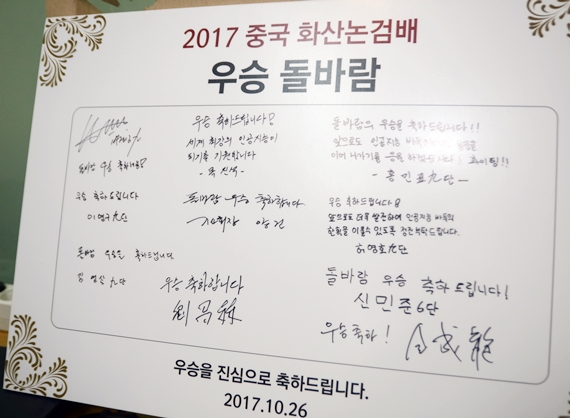 2017 중국 화산논검배
우승 돌바람
우승 축하드립니다!
세계 최강의 인공지능이
되기를 기원합니다
- 목진석 -
돌바람의 우승을 축하드립니다!!
앞으로도 인공지능
화이팅!!
- 홍민표九단 -
돌바람 우승 축하해요!
우승 축하드립니다
이영구九단
돌바람 우승 축하합니다.
양건
우승 축하드립니다
앞으로도 더욱 발전하여 인공지능 바둑의
한 획을 이룰 수 있도록 정진 부탁드립니다.
허영호九단
돌바람 우승을 축하드립니다
九단
우승 축하합니다
劉昌赫
돌바람 우승 축하드립니다!
신민준6단
우승축하!
우승을 진심으로 축하드립니다.
2017.10.26